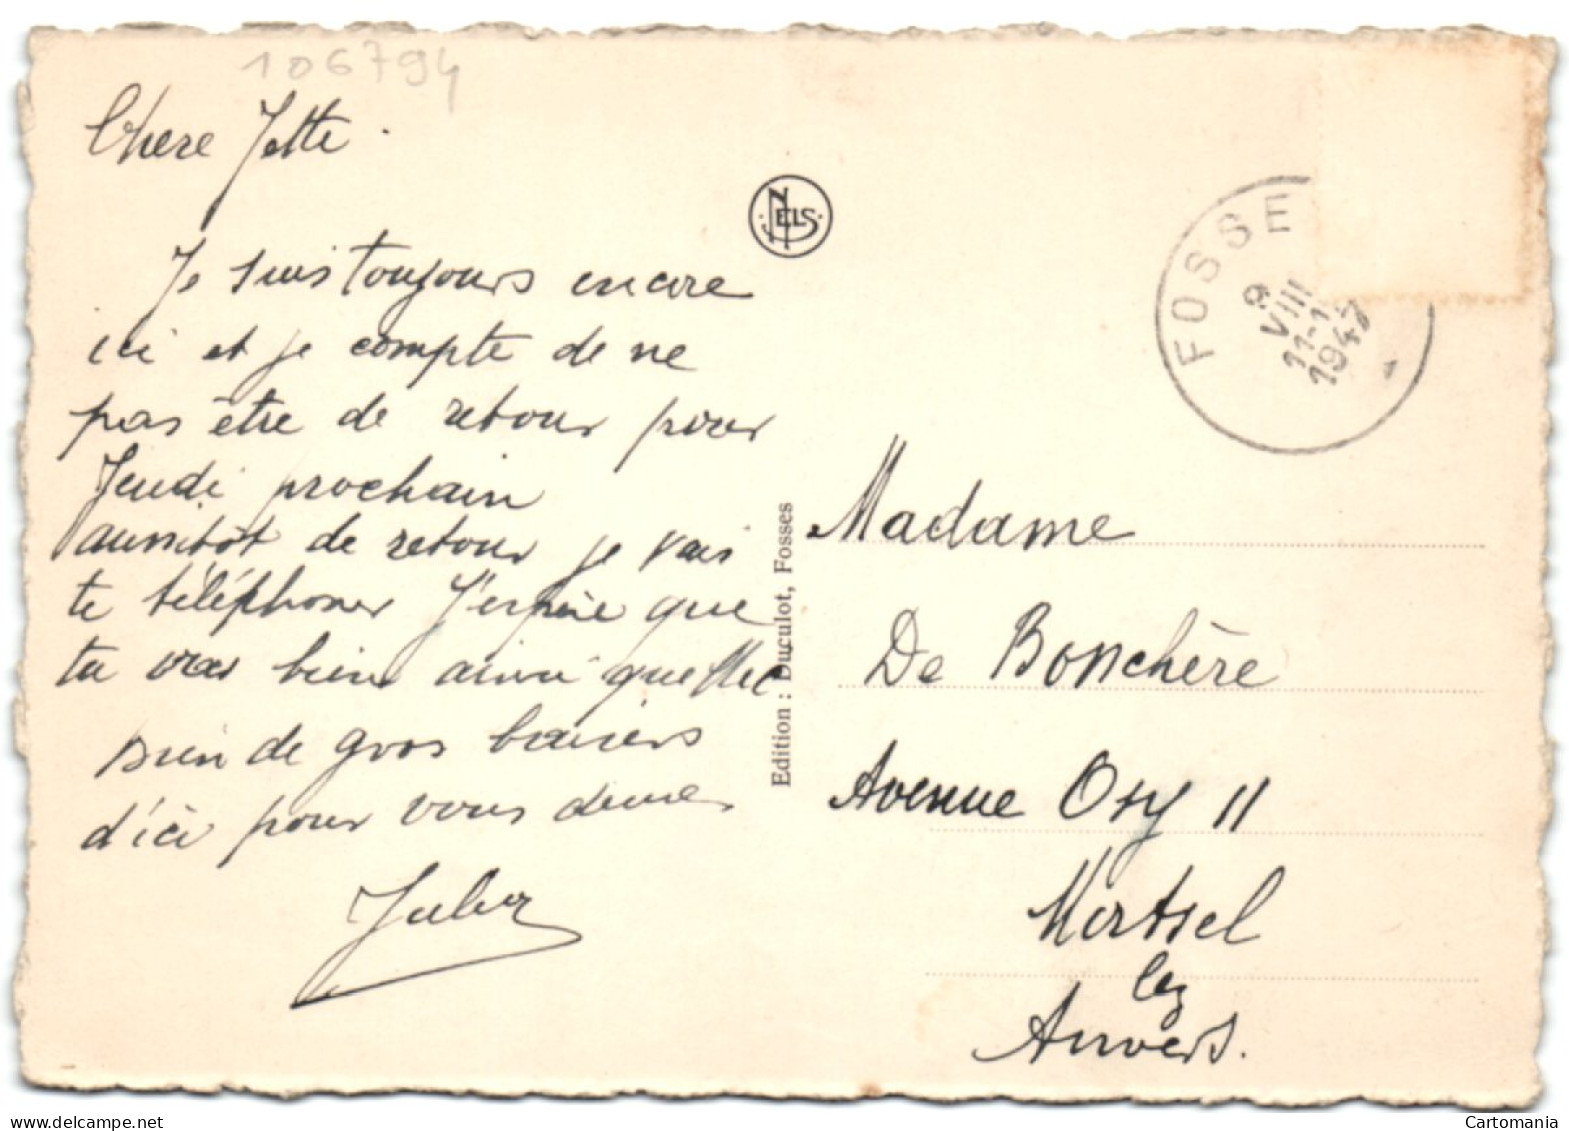 106794
Chere Jette.
Je suis toujours encore
ici et je compte de ne
pas être de retour pour
Jeudi prochain
aussitôt de retour je vais
te téléphoner J'espère que
tu vas bien ainsi que
bien de gros baisers
d'ici pour vous deux
NELS
Edition : Duculot, Fosses
FOSSE
9
VIII
11-1
1947
Madame
De Bonchère
Avenue Osy 11
Mortsel
lez
Anvers.
delcampe.net
Cartomania